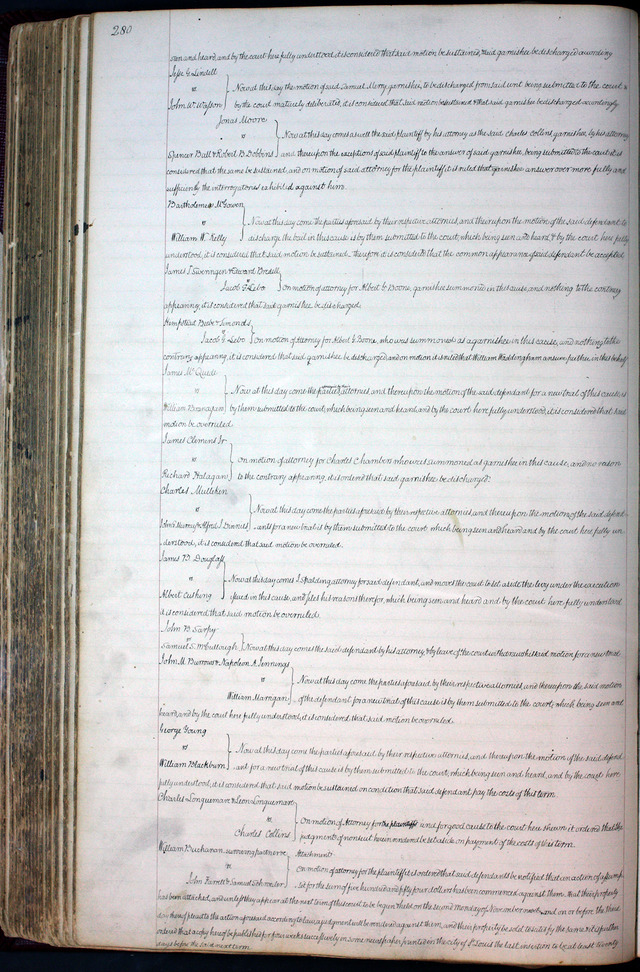 280
seen and heard, and by the court here fully understood, it is considered that said motion be sustained, & said garnishee be discharged accordingly
Jesse G Lindell
vs
Now at this day the motion of said Samuel Merry garnishee, to be discharged from said writ being submitted to the court &
John W. Watson
by the court maturely deliberated, it is considered that said motion be sustained & that said garnishee be discharged accordingly.
Jonas Moore
vs
Now at this day comes as well the said plaintiff by his attorney as the said Charles Collins garnishee, by his attorney
Spencer Ball & Robert B Dobbins
and thereupon the exceptions of said plaintiff to the answer of said garnishee, being submitted to the court it is
considered that the same be sustained, and on motion of said attorney for the plaintiff, it is ruled that garnishee answer over more fully and
sufficiently the interrogatories exhibited against him.
Bartholomew McGowen
vs
Now at this day come the parties aforesaid by their respective attornies, and thereupon the motion of the said defendant to
William W. Kelly
discharge the bail in this cause is by them submitted to the court, which being seen and heard & by the court here fully
understood, it is considered that said motion be sustained. Therefore it is considered that the common appearance of said defendant be accepted
James S Swenngen & Edward Bredell
vs
Jacob G Lebo
On motion of attorney for Albert G Boone, garnishee summoned in this cause, and nothing to the contrary
appearing, it is considered that said garnishee be discharged.
Hempstead Beebe & Simonds
vs
Jacob G Lebo
On motion of Attorney for Albert G Boone, who was summoned as a garnishee in this cause, and nothing to the
contrary appearing, it is considered that said garnishee be discharged and on motion it is ruled that William Waddingham answer further in this behalf
James McQuede
vs
Now at this day come the parties attornies, and thereupon the motion of the said defendant for a new trial of this cause, is
William Branagan
by them submitted to the court, which being seen and heard, and by the court here fully understood, it is considered that said
motion be overruled.
James Clemens Jr
vs
On motion of attorney for Charles Chambers who was summoned as garnishee in this cause, and no reason
Richard Halagan
to the contrary appearing, it is ordered that said garnishee be discharged.
Charles Mulliken
vs
Now at this day come the parties aforesaid by their respective attornies and thereupon the motion of the said defend-
ants for a new trial is by them submitted to the court which being seen and heard and by the court here fully un
derstood, it is considered that said motion be overruled.
James B Douglass
vs
Now at this day comes J Spalding attorney for said defendant, and moves the court to set aside the levy under the execution
Albert Cushing
issued in this cause, and files his reasons therefor, which being seen and heard and by the court here fully understood
it is considered that said motion be overruled.
John B Sarpy
vs
Samuel S. McCullough
Now at this day comes the said defendant by his attorney & by leave of the court withdraws the said motion for a new trial
John M. Burrows & Napoleon A Jennings
vs
Now at this day come the parties aforesaid by their respective attornies, and thereupon the said motion
William Mangan
of the defendant for a new trial of this cause is by them submitted to the court, which being seen and
heard, and by the court here fully understood, it is considered, that said motion be overruled.
George Young
vs
Now at this day come the parties aforesaid by their respective attornies, and thereupon the motion of the said defend
William Blackburn
ant for a new trial of this cause is by them submitted to the court, which being seen and heard, and by the court here
fully understood, it is considered that said motion be sustained on condition that said defendant pay the costs of this term.
Charles Longuemare & Leon Longuemare
vs
On motion of Attorney for the plaintiffs and for good cause to the court here shewn it is ordered that the
Charles Collins
judgment of nonsuit herein rendered be set aside on payment of the costs of this term.
William Buchanan surviving partner &c
Attachment
vs
On motion of attorney for the plaintiff it is ordered that said defendants be notified that an action of assump
sit for the sum of five hundred and fifty four dollars has been commenced against them. that their property
has been attached, and unless they appear at the next term of this court to be begun & held on the second Monday of November next and on or before the third
day thereof plead to the action aforesaid according to law, a judgment will be rendered against them, and their property be sold to satisfy the same. & it is further
ordered that a copy hereof be published for four weeks successively in some newspaper printed in the city of St Louis the last insertion to be at least twenty
days before the said next term.